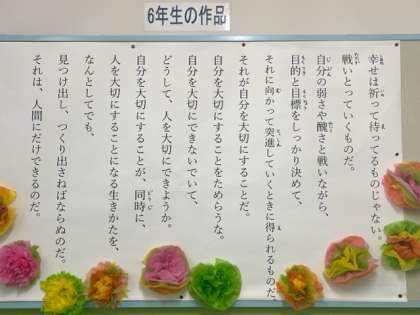 6年生の作品
幸せは祈って待ってるものじゃない。
戦いとっていくものだ。
自分の弱さや醜さと戦いながら、
目的と目標をしっかり決めて、
それに向かって突進していくときに得られるものだ。
それが自分を大切にすることだ。
自分を大切にすることをためらうな。
自分を大切にできないでいて、
どうして、人を大切にできようか。
自分を大切にすることが、同時に、
人を大切にすることになる生きかたを、
なんとしてでも、
見つけ出し、つくり出さねばならぬのだ。
それは、人間にだけできるのだ。